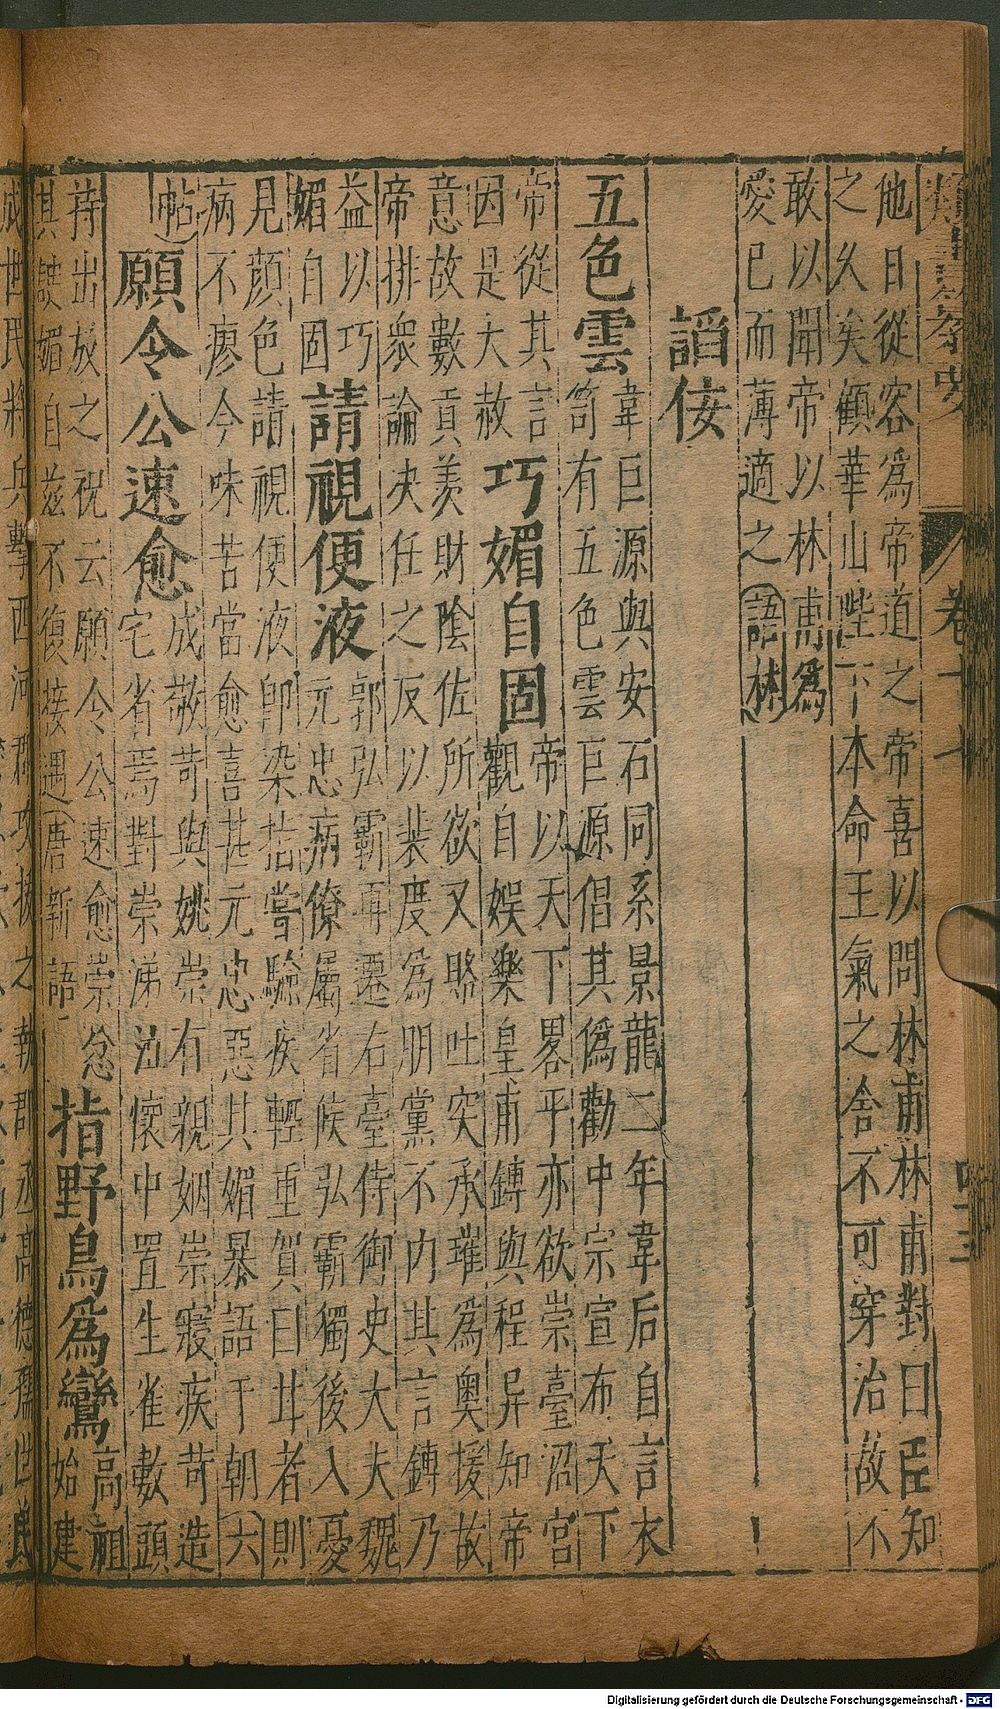 卷十七
他日從容爲帝道之帝喜以問林甫林甫對曰臣知
之久矣顧華山陛下本命王氣之舍不可穿治故不
敢以聞帝以林甫爲
愛已而薄適之(語林)
謟佞
五色雲
韋巨源與安石同系景龍二年韋后自言衣
笥有五色雲巨源倡其僞勸中宗宣布天下
帝從其言
因是大赦
巧媚自固
帝以天下畧平亦欲崇臺沼宮
觀自娛樂皇甫鎛與程异知帝
意故數貢羨財陰佐所欲又賂吐突承璀爲奧援故
帝排衆論决任之反以裴度爲朋黨不内其言鎛乃
益以巧
媚自固
請視便液
郭弘霸再遷右臺侍御史大夫魏
元忠病僚屬省候弘霸獨後入憂
見顔色請視便液卽染指嘗驗疾輕重賀曰甘者則
病不瘳今味苦當愈喜甚元忠惡其媚暴語于朝(六
帖)
願令公速愈
成敬苛與姚崇有親姻崇寢疾苛造
宅省焉對崇涕泗懷中置生雀數頭
持出放之祝云願令公速愈崇忿
其諛媚自兹不復接遇(唐新語)
指野鳥爲鸞
高祖
始建
成世民將兵擊西河郡攻拔之執郡丞高德儒世民
Digitalisierung gefördert durch die Deutsche Forschungsgemeinschaft - DFG